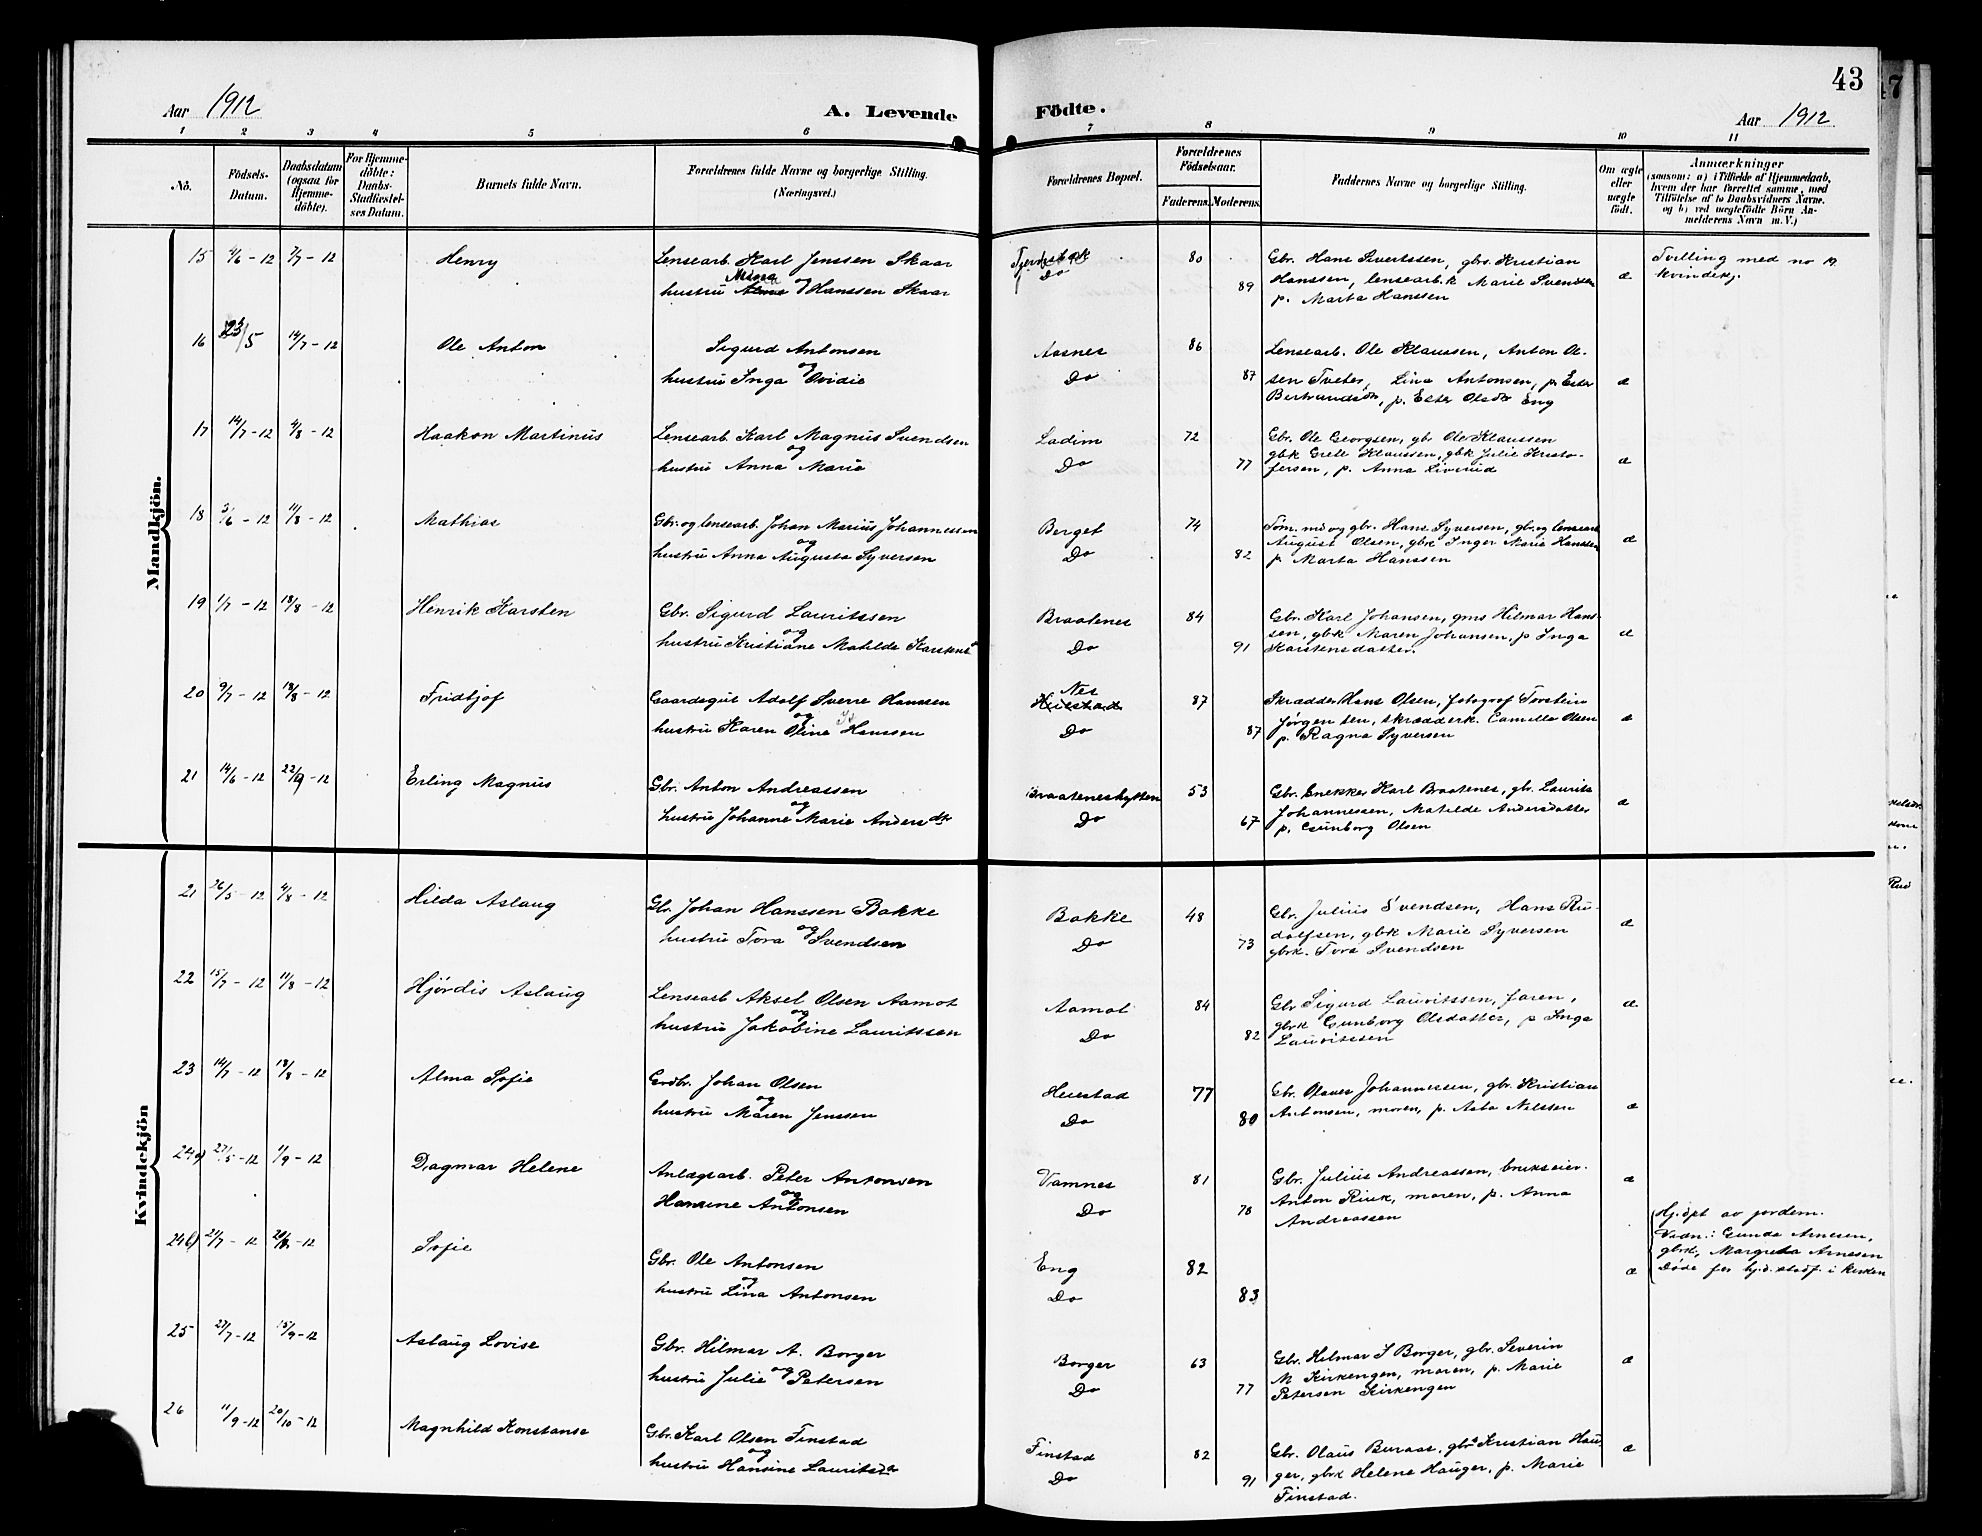 Aar 1912
A. Levende
Födte.
43
Aar 1912.
1 2 3 4 5 6 7 8 9 10 11
No.
Födsels-
Datum.
Daabsdatum
(ogsaa for
Hjemme-
döbte).
For Hjemme-
döbte:
Daabs-
Stadfæstel-
ses Datum.
Barnets fulde Navn.
Forældrenes fulde Navne og borgerlige Stilling.
(Næringsvei.)
Forældrenes Bopæl.
Forældrenes
Födselsaar.
Faderens. Moderens.
Faddernes Navne og borgerlige Stilling.
Om ægte
eller
uægte
födt.
Anmærkninger
(saasom: a) i Tilfælde af Hjemmedaab,
hvem der har forrettet samme, med
Tilföielse af to Daabsvidners Navne,
og b) ved uægtefödte Börn An-
melderens Navn m. V.)
Mandkjön.
15 4/6 - 12 7/7 - 12 Henry Lensearb. Karl Jenssen Skaar 80 Gbr. Hans Sivertssen, gbrs. Kristian Tvilling med no 19
Mina
hustru og Hanssen Skaar Do 89 Hanssen, lensearb.k Marie Svendsen æ kvindekj.
p. Marta Hanssen
16 23/5 14/7 - 12 Ole Anton Sigurd Antonsen Aasnes 86 Lensearb. Ole Klaussen, Anton Ol-
og
hustru Inga Ovidie Do 87 sen Tveter, Lina Antonsen, p. Ester æ
p. Ester Olsdtr Eng
17 14/7 - 12 4/8 - 12 Haakon Martinus Lensearb. Karl Magnus Svendsen Ladim 72 Gbr. Ole Georgsen, gbr Ole Klaussen
og
hustru Anna Marie Do 77 gbk Grete Klaussen, gbk Julie Kristo- æ
fersen, p. Anna
18 3/6 - 12 11/8 - 12 Mathias Gbr. og lensearb. Johan Marius Johannessen Berget 74 Töm. md og gbr. Hans Syversen, gbr. og lensearb
og
hustru Anna Augusta Syversen Do 82 August Olsen, gbrk Inger Marie Hanssen æ
p. Marta Hanssen
19 1/7 - 12 18/8 - 12 Henrik Karsten Gbr. Sigurd Lauritssen Braatenes 84 Gbr. Karl Johansen, gms Hilmar Hans-
og
hustru Kristiane Matilde Karstens Do 91 sen, gbk Maren Johansen, p Inga æ
Karstensdatter.
20 9/7 - 12 18/8 - 12 Fridtjof Gaardsgut Adolf Sverre Hanssen Nes 87 Skrædder Hans Olsen, fotograf Torstein
og
hustru Karen Oline Hanssen Do 87 Jørgensen, skrædderk. Camilla Olsen æ
p. Ragna Syversen
21 14/6 - 12 22/9 - 12 Erling Magnus Gbr. Anton Andreassen Braateneshytten 53 Gbr. Snekker Karl Braatenes, gbr. Laurits
og
hustru Johanne Marie Anders dtr Do 67 Johannessen, Matilde Andersdatter æ
p. Gunborg Olsen
Kvindekjön
21 26/5 - 12 4/8 - 12 Hilda Aslaug Gbr. Johan Hanssen Bakke Bakke 48 Gbr. Julius Svendsen, Hans Ru-
og
hustru Tora Svendsen Do 73 dolfsen, gbk Marie Syversen æ
gbrk. Tora Svendsen
22 15/7 - 12 11/8 - 12 Hjørdis Aslaug Lensearb Aksel Olsen Aamot Aamot 84 Gbr Sigurd Lauritssen, faren, æ
og
hustru Jakobine Lauritssen Do 82 gbrk Gunborg Olsdatter, p Inga
Lauritssen
23 14/7 - 12 18/8 - 12 Alma Sofie Grdbr. Johan Olsen Heiestad 77 Gbr. Olaves Johannessen, gbr. Kristian
og
hustru Maren Jenssen Do 80 Antonsen, moren, p. Asta Nilssen æ
24a) 27/5 - 12 1/9 - 12 Dagmar Helene Anlægsarb. Peter Antonsen Vamnes 81 Gbr. Julius Andreassen, brukseier. æ
og
Hansine Antonsen Do 78 Anton Riuk, moren, p. Anna
Andreassen
24b) 21/7 - 12 Sofie Gbr. Ole Antonsen Eng 82 æ
og
hustru Lina Antonsen Do 83
Hj.døpt av jordem.
Vidn.: Gunda Arnesen,
gbrk, Margreta Arnesen
Døde før hj.d. stadf. i kirken
25 27/7 - 12 15/9 - 12 Aslaug Lovise Gbr. Hilmar A. Borger Borger 63 Gbr. Hilmar S Borger, gbr. Severin æ
og
hustru Julie Petersen Do 77 M Kirkengen, moren, p. Marie
Petersen Kirkengen
26 11/9 - 12 20/10 - 12 Magnhild Konstanse Gbr. Karl Olsen Finstad Finstad 82 Gbr. Olaus Buraas, gbrs Kristian Hau- æ
og
hustru Hansine Lauritsdtr Do 91 ger, gbrk Helene Hauger, p. Marie
Finstad.